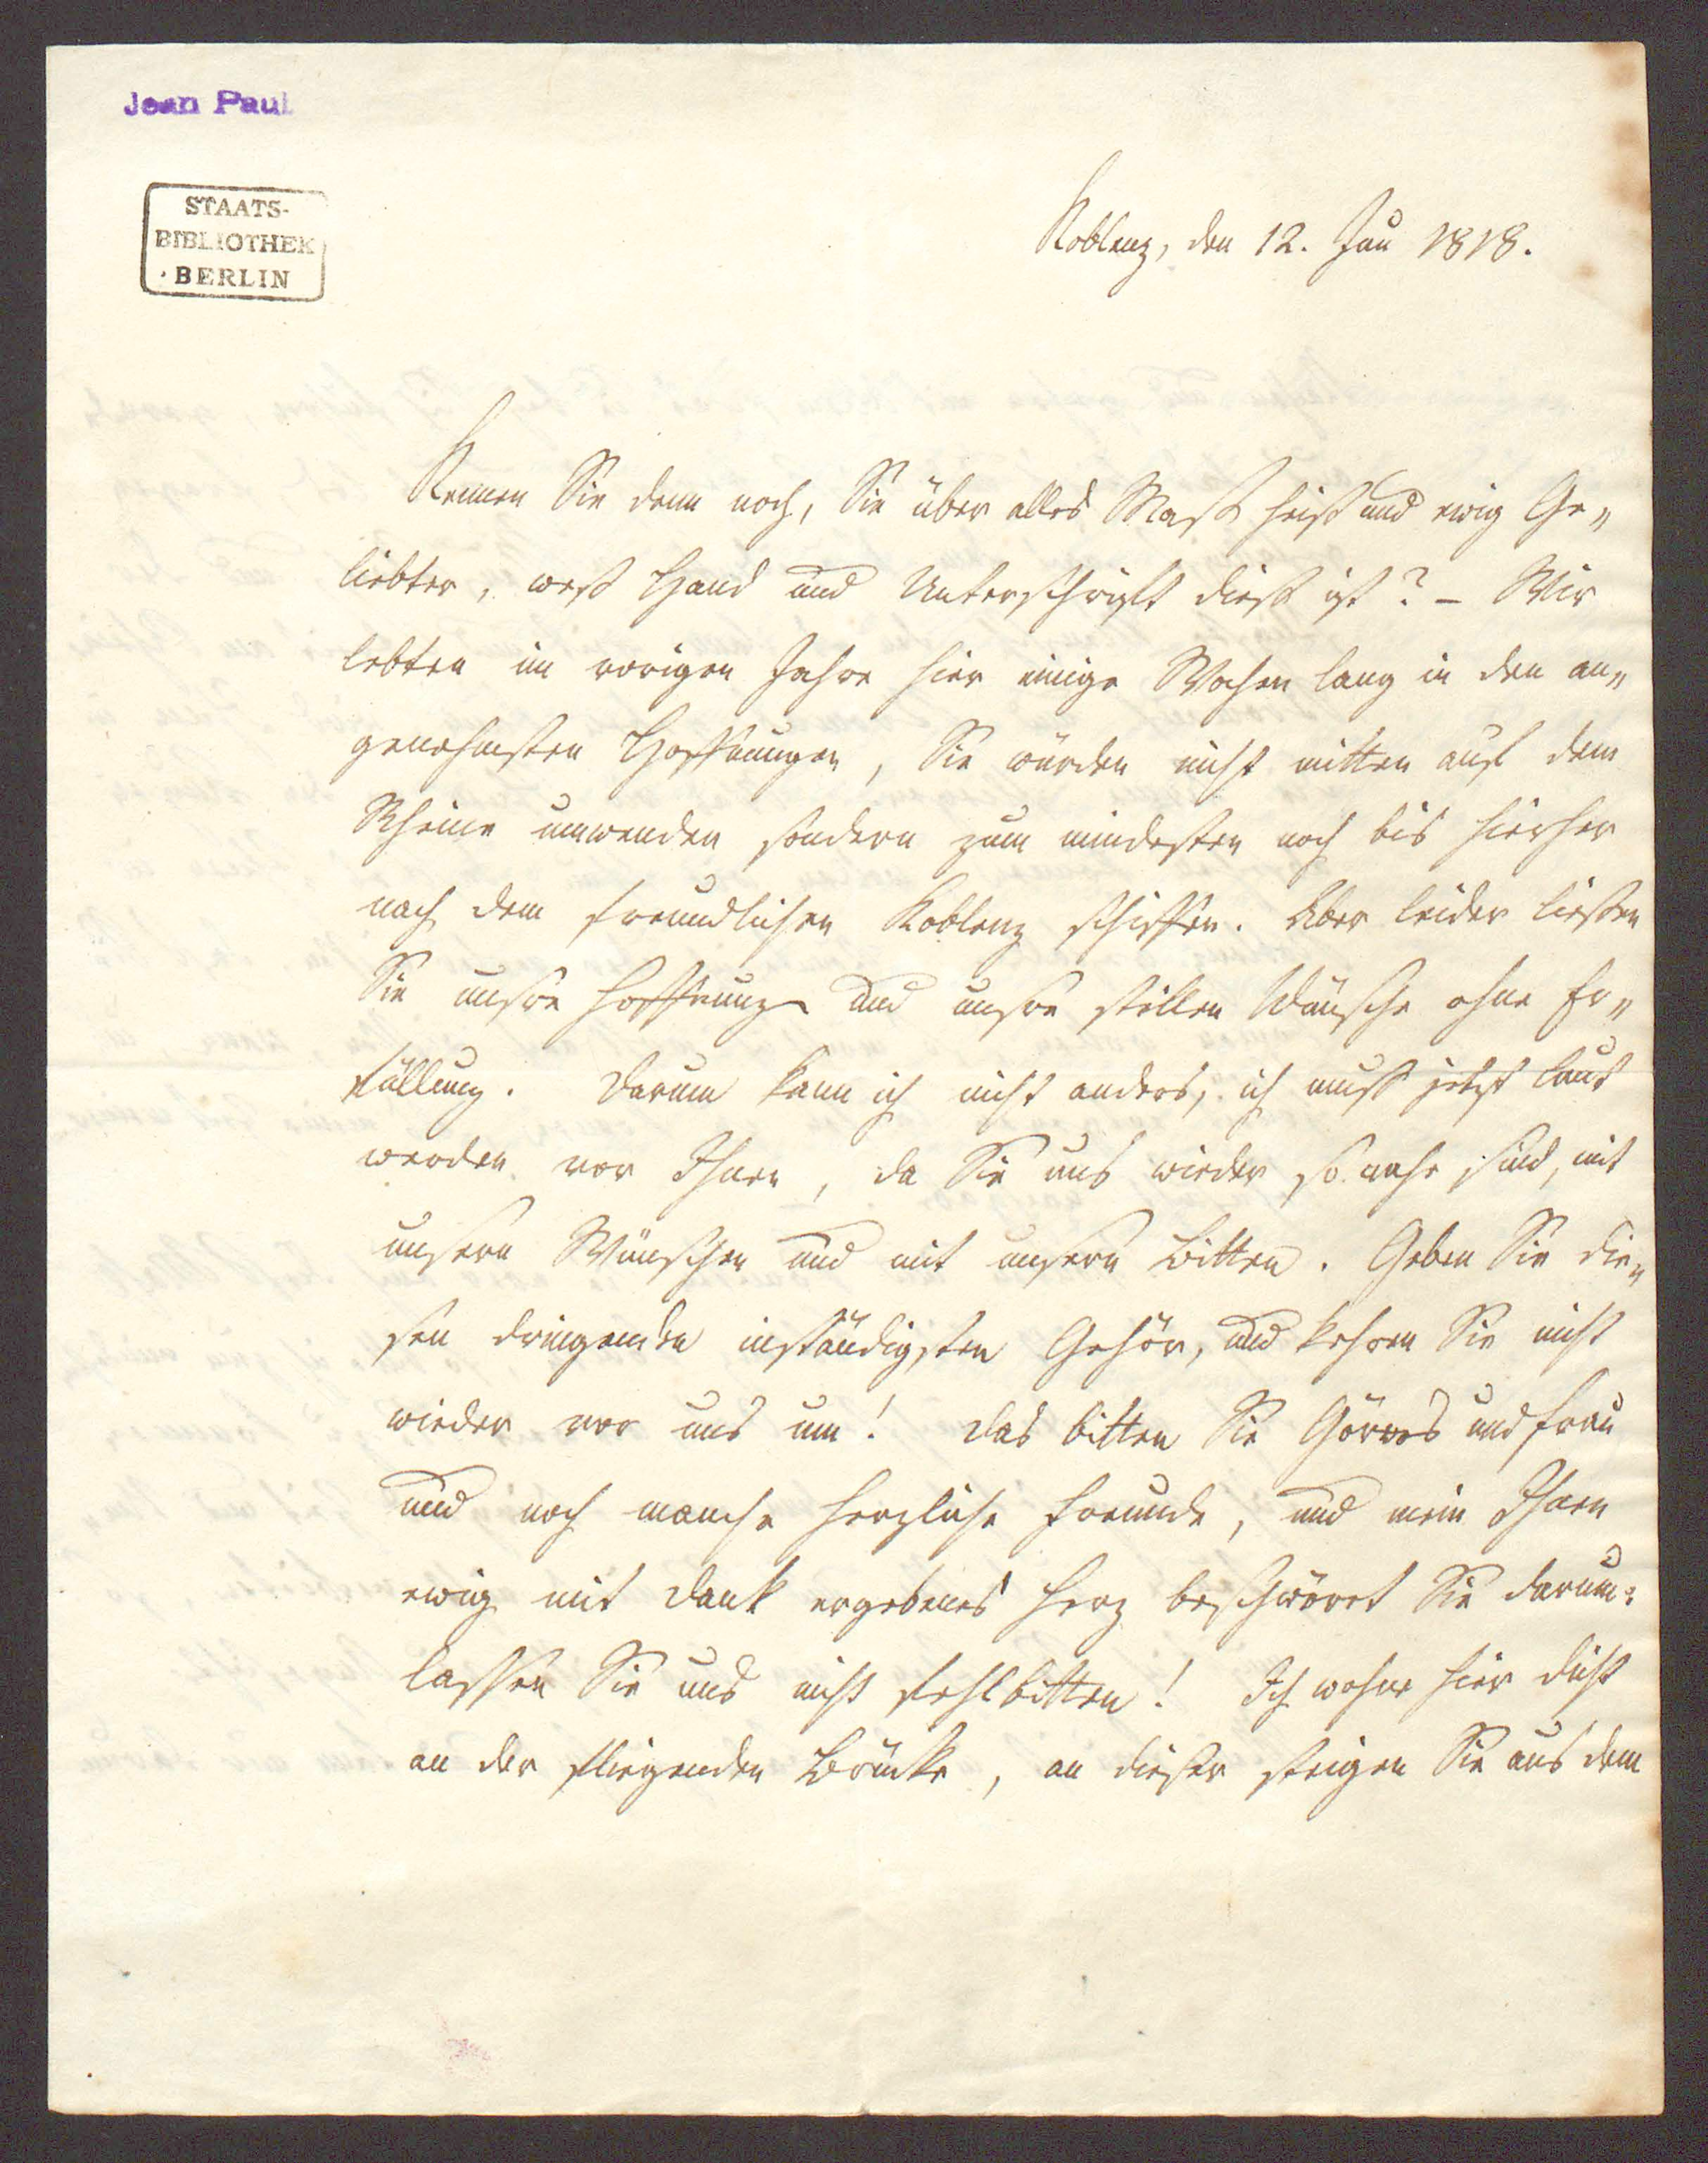 Jean Paul
STAATS-
BIBLIOTHEK
BERLIN
Koblenz, den 12. Jun 1818.
Kennen Sie denn noch, Sie über alles Maß heiß und ewig Ge„
liebter, weß Hand und Unterschrift dieß ist? – Wir
lebten im vorigen Jahre hier einige Wochen lang in den an„
genehmsten Hoffnungen, Sie würden nicht mitten auf dem
Rheine umwenden sondern zum mindesten noch bis hierher
nach dem freundlichen Koblenz schiffen. Aber leider ließen
Sie unsre Hoffnung und unsre stillen Wünsche ohne Er„
füllung. Darum kann ich nicht anders, ich muß jetzt laut
werden vor Ihnen, da Sie uns wieder so nahe sind, mit
unsern Wünschen und mit unsern Bitten. Geben Sie die„
sen dringenden inständigsten Gehör, und kehren Sie nicht
wieder vor uns um! Das bitten Sie Görres und Frau
und noch manche herzliche Freunde, und mein Ihnen
ewig mit Dank ergebenes Herz beschwöret Sie darum:
lassen Sie uns nicht fehlbitten! Ich wohne hier dicht
an der fliegenden Brücke, an dieser steigen Sie aus dem